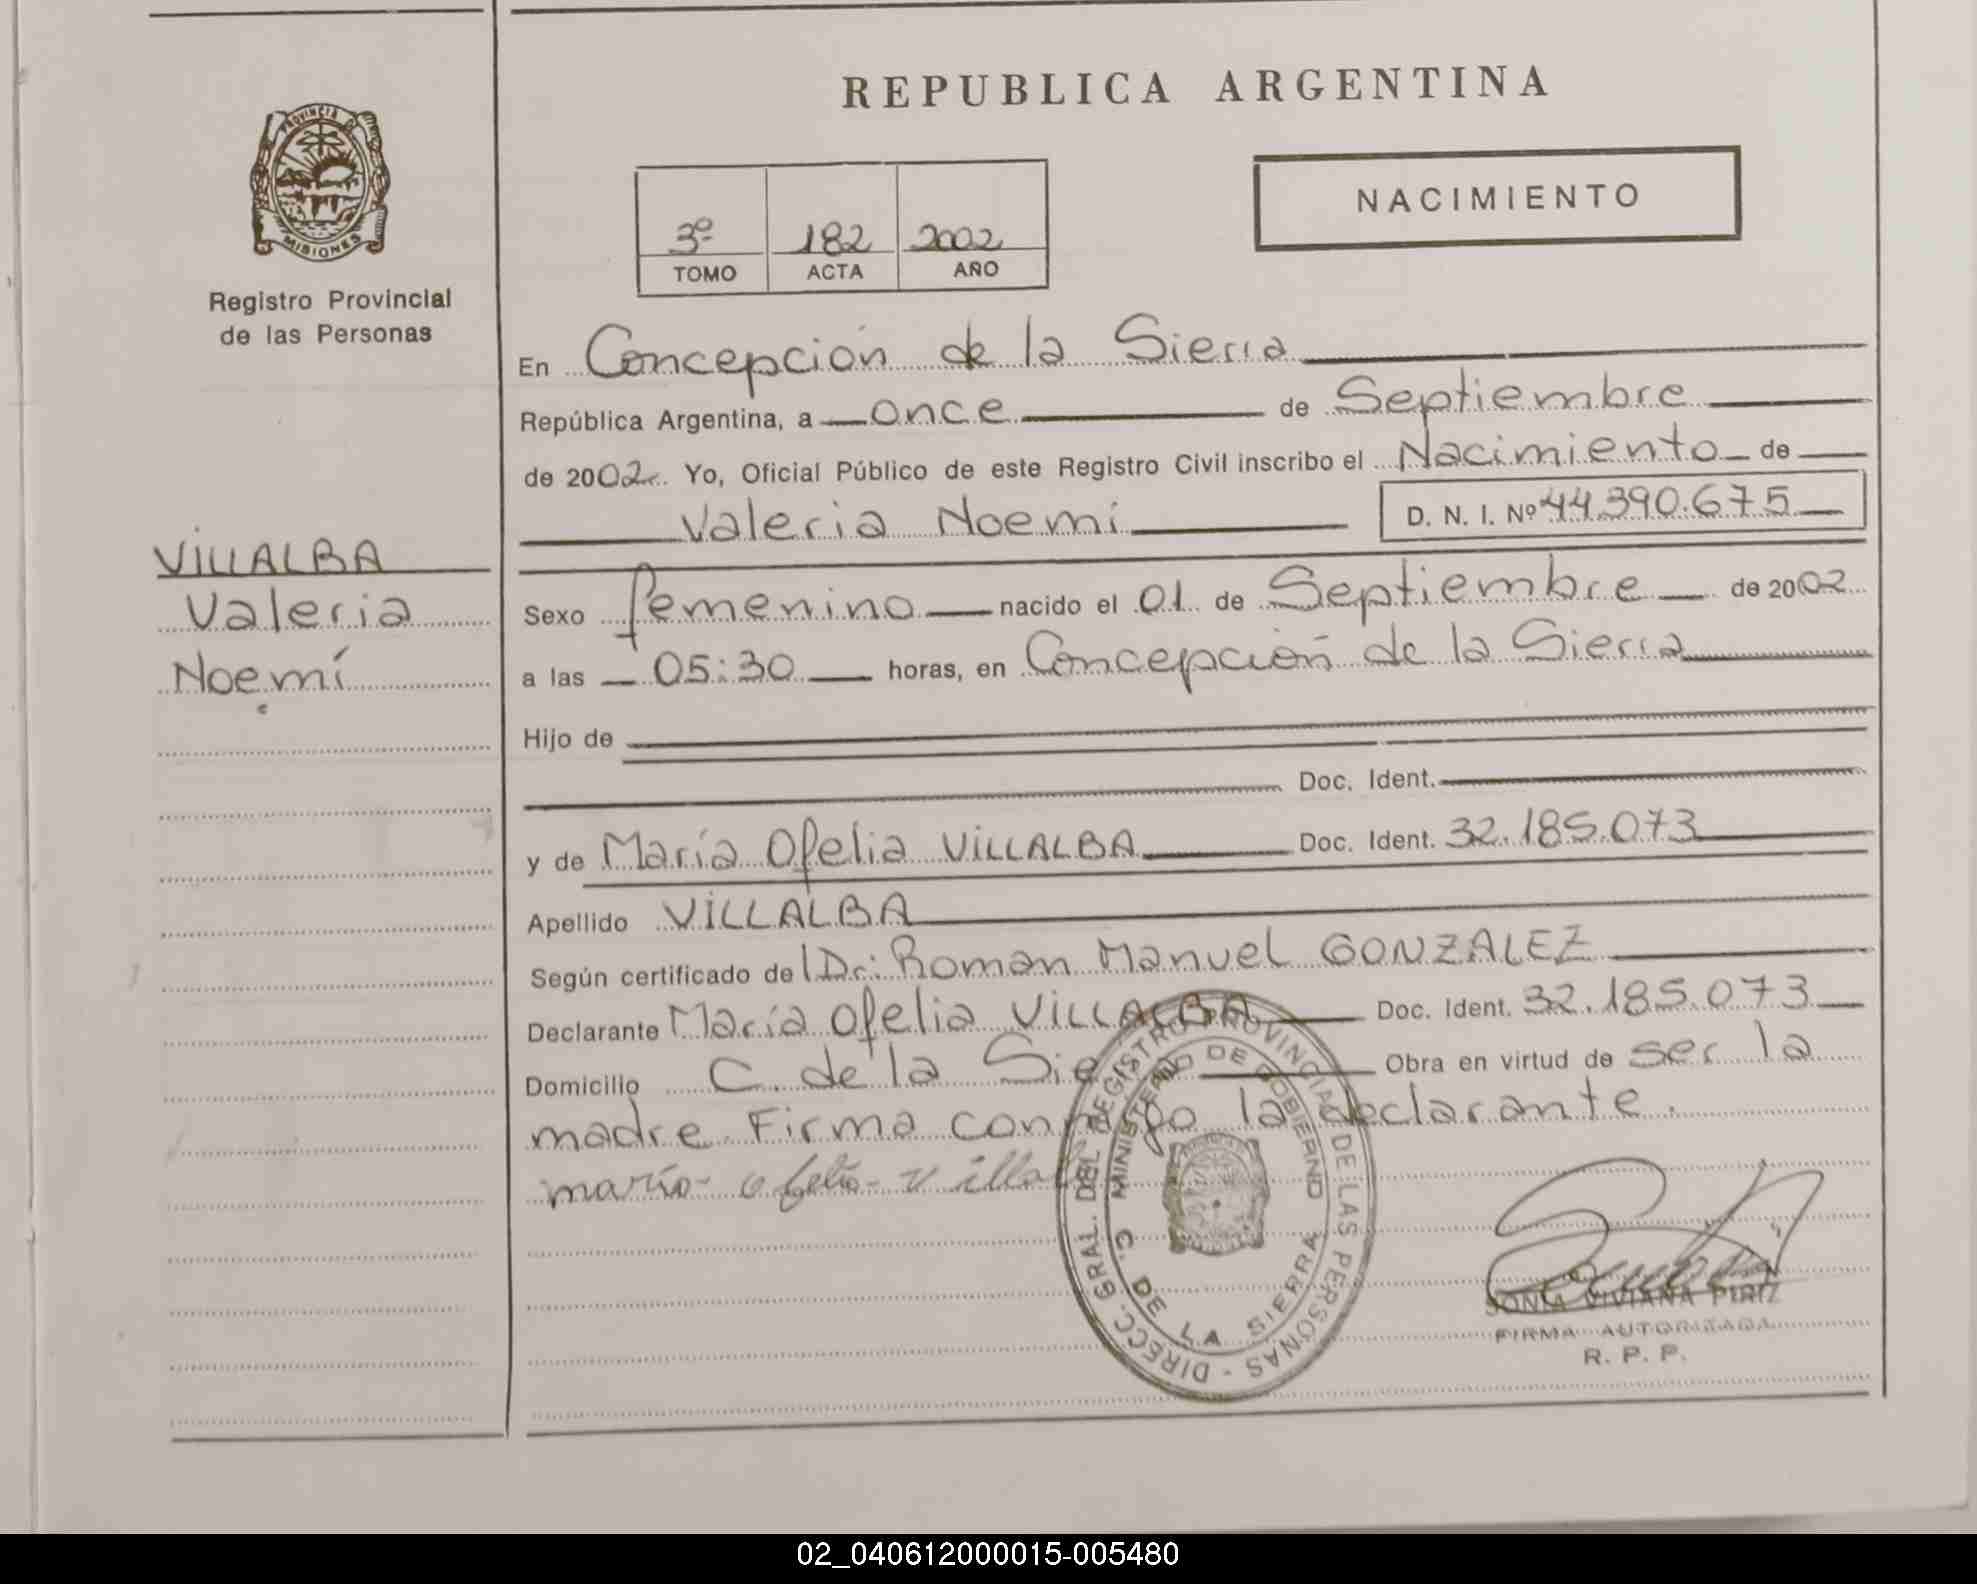 REPUBLICA ARGENTINA
PROVINCIA DE
MISIONES
Registro Provincial
de las Personas
NACIMIENTO
3º 182 2002
TOMO ACTA AÑO
En Concepción de la Sierra
República Argentina, a once de Septiembre
de 2002. Yo, Oficial Público de este Registro Civil inscribo el Nacimiento de
Valeria Noemí D. N. I. Nº 44.390.675
VILLALBA
Valeria
Noemí
Sexo femenino nacido el 01 de Septiembre de 2002
a las 05:30 horas, en Concepción de la Sierra
Hijo de
Doc. Ident.
y de María Ofelia VILLALBA Doc. Ident. 32.185.073
Apellido VILLALBA
Según certificado de Dr: Roman Manuel GONZALEZ
Declarante María Ofelia VILLALBA Doc. Ident. 32.185.073
Domicilio C. de la Sie Obra en virtud de ser la
madre. Firma conmigo la declarante.
maria ofelia villal
DIRECC. GRAL. DEL REGISTRO PROVINCIAL DE LAS PERSONAS -
MINISTERIO DE GOBIERNO
C. DE LA SIERRA
SONIA VIVIANA PIRIZ
FIRMA AUTORIZADA
R. P. P.
02_040612000015-005480